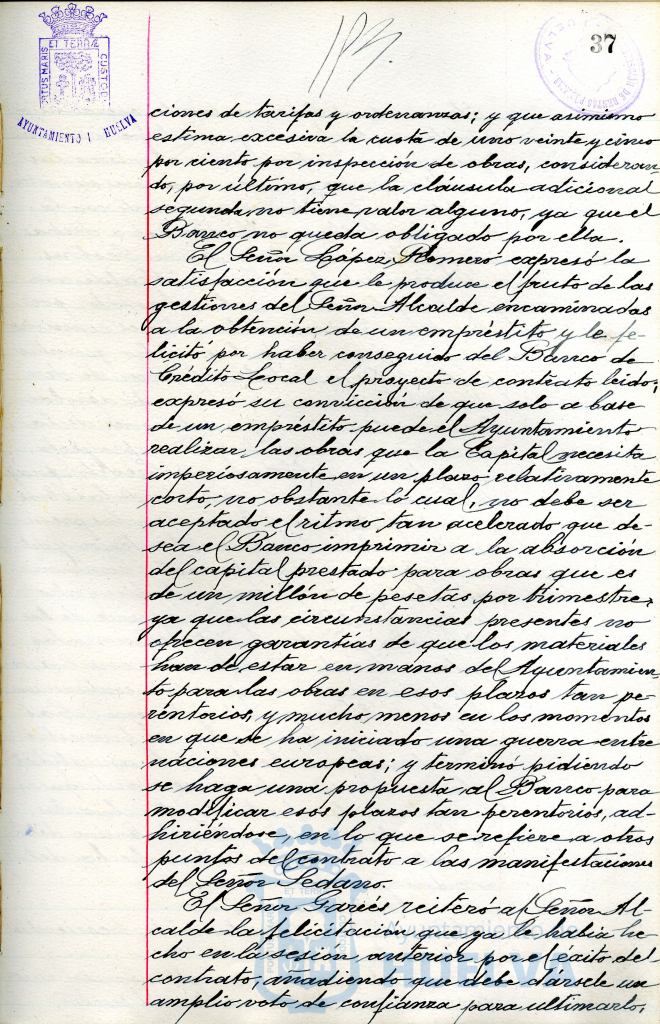 37
PORTUS MARIS ET TERRÆ CUSTODIA
AYUNTAMIENTO HUELVA
ciones de tarifas y ordenanzas; y que asimismo
estima excesiva la cuota de uno veinte y cinco
por ciento por inspección de obras, consideran-
do, por último, que la cláusula adicional
segunda no tiene valor alguno, ya que el
Banco no queda obligado por ella.
El Señor López Romero expresó la
satisfacción que le produce el fruto de las
gestiones del Señor Alcalde encaminadas
a la obtención de un empréstito y le fe-
licitó por haber conseguido del Banco de
Crédito Local el proyecto de contrato leido;
expresó su convicción de que solo a base
de un empréstito puede el Ayuntamiento
realizar las obras que la Capital necesita
imperiosamente en un plazo relativamente
corto, no obstante lo cual, no debe ser
aceptado el ritmo tan acelerado que de-
sea el Banco imprimir a la absorción
del capital prestado para obras que es
de un millón de pesetas por trimestre,
ya que las circunstancias presentes no
ofrecen garantías de que los materiales
han de estar en manos del Ayuntamien-
to para las obras en esos plazos tan pe-
rentorios, y mucho menos en los momentos
en que se ha iniciado una guerra entre
naciones europeas; y terminó pidiendo
se haga una propuesta al Banco para
modificar esos plazos tan perentorios, ad-
hiriéndose, en lo que se refiere a otros
puntos del contrato a las manifestaciones
del Señor Sedano.
El Señor Garcés reiteró al Señor Al-
calde la felicitación que ya le habia he-
cho en la sesión anterior por el éxito del
contrato, añadiendo que debe dársele un
amplio voto de confianza para ultimarlo,
Ayuntamiento de
HUELVA